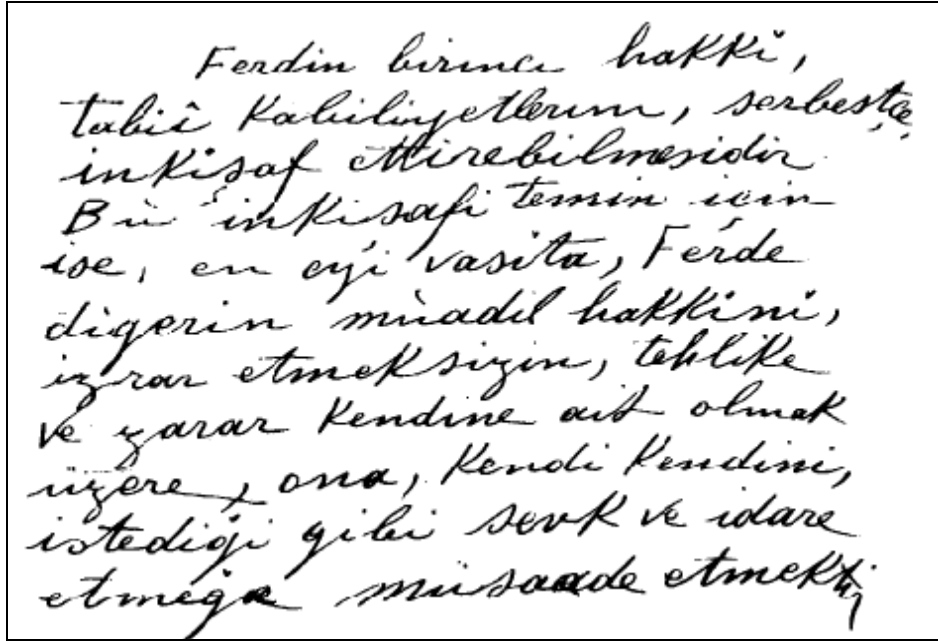 Ferdin birinci hakkı,
tabiî kabiliyetlerini, serbestçe,
inkişaf ettirebilmesidir
Bu inkişafi temin için
ise, en eyi vasıta, Ferde
digerin müadil hakkini,
izrar etmeksizin, tehlike
ve zarar kendine ait olmak
üzere, ona, kendi kendini,
istediği gibi sevk ve idare
etmeğe müsaade etmektir